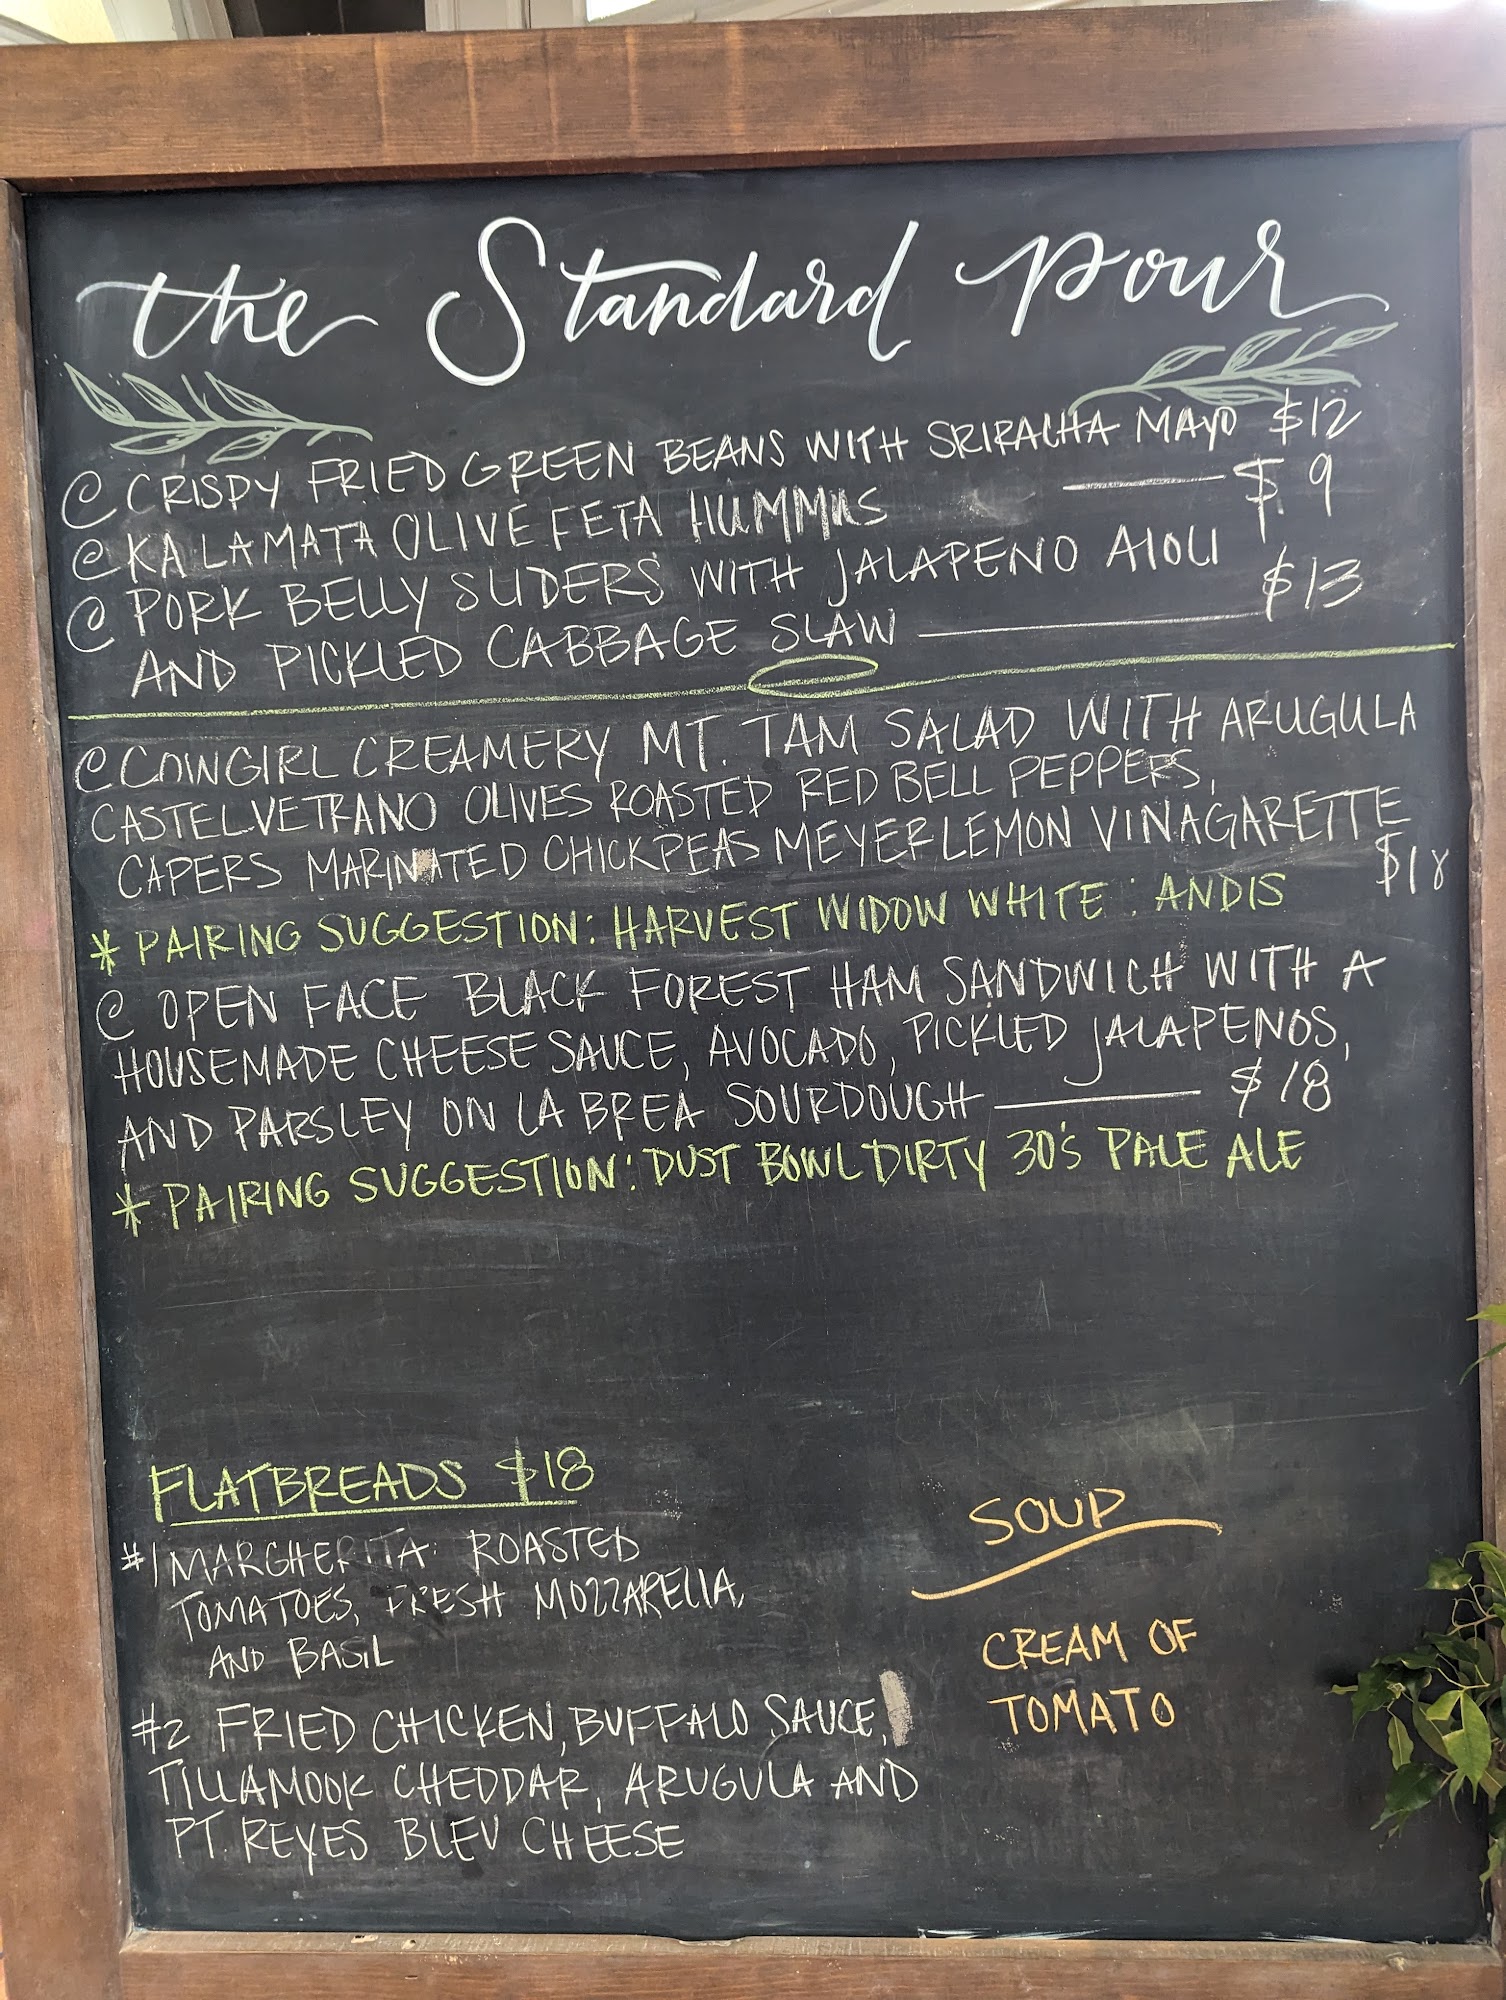 the Standard pour
CRISPY FRIED GREEN BEANS WITH SRIRACHA MAYO $12
KALAMATA OLIVE FETA HUMMUS $9
PORK BELLY SLIDERS WITH JALAPENO AIOLI
AND PICKLED CABBAGE SLAW $13
COWGIRL CREAMERY MT. TAM SALAD WITH ARUGULA
CASTELVETRANO OLIVES ROASTED RED BELL PEPPERS,
CAPERS MARINATED CHICKPEAS MEYER LEMON VINAGARETTE
$18
* PAIRING SUGGESTION: HARVEST WIDOW WHITE: ANDIS
OPEN FACE BLACK FOREST HAM SANDWICH WITH A
HOUSEMADE CHEESE SAUCE, AVOCADO, PICKLED JALAPENOS,
AND PARSLEY ON LA BREA SOURDOUGH $18
* PAIRING SUGGESTION: DUST BOWL DIRTY 30'S PALE ALE
FLATBREADS $18
#1 MARGHERITA: ROASTED
TOMATOES, FRESH MOZZARELLA,
AND BASIL
#2 FRIED CHICKEN, BUFFALO SAUCE,
TILLAMOOK CHEDDAR, ARUGULA AND
PT. REYES BLEU CHEESE
SOUP
CREAM OF
TOMATO